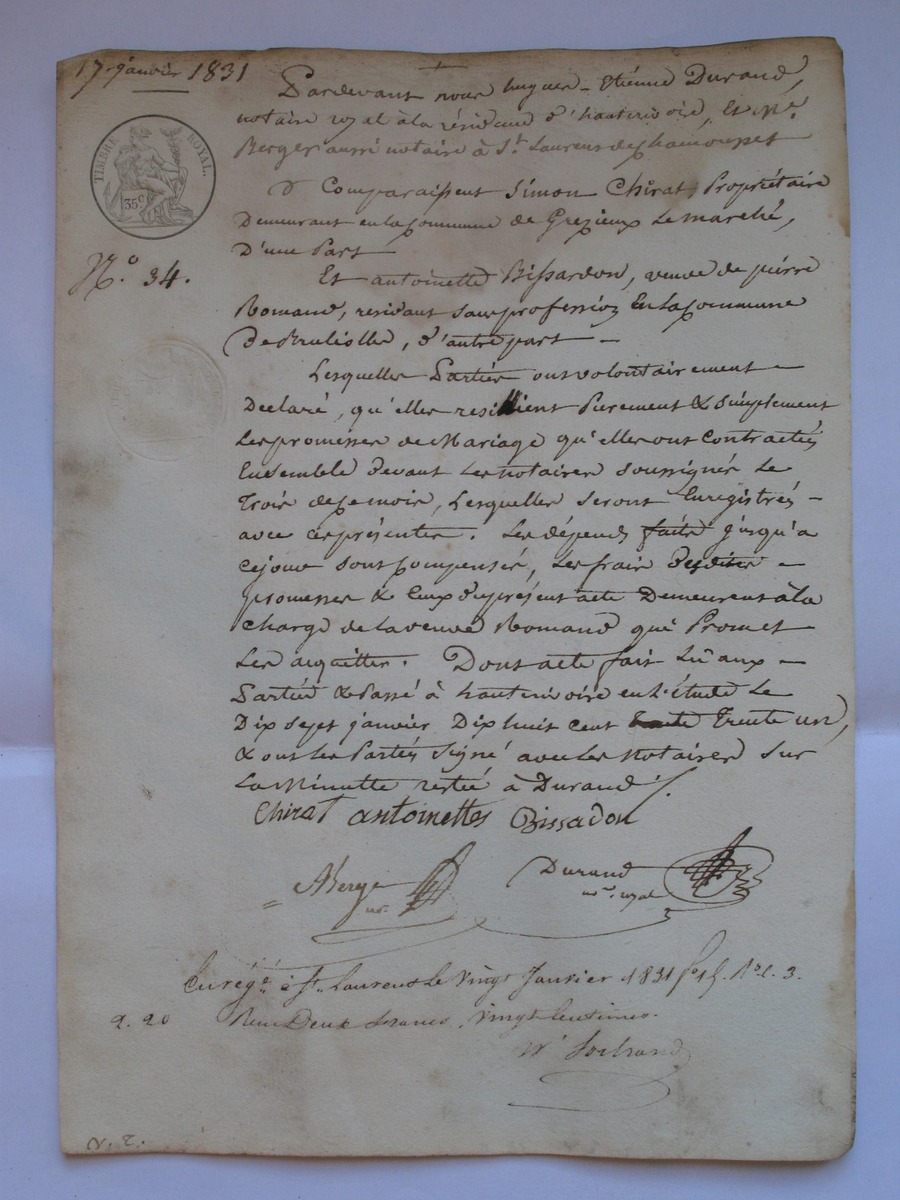 17 janvier 1831
Pardevant nous hugues-Etiénne Durand,
notaire royal à la résidence d'hauterivoire, Et Me.
Berger aussi notaire à St. Laurent de chamousset
TIMBRE ROYAL.
35c
Comparaissent Simon Chirat, Propriétaire
Demeurant en la commune de Grezieux Le marché,
D'une Part
No. 34.
Et antoinette Bissardon, veuve de pierre
Romand, residant sans profession En la Commune
De Bruliolle, d'autre part —
Lesquelles Partiés ont volontairement —
Declaré, qu'elles resillient Purement & Simplement
Les promesses de Mariage qu'elles ont Contractéés
Ensemble devant Les notaires Soussignés Le
Trois de ce mois, Lesquelles Seront Enregistréés —
avec ces présentes. Les dépends faits jusqu'a
ce jour sont compensés, Les frais desdites —
promesses & Ceux du présent acte Demeurent à la
Charge de la veuve Romand qui Promet
Les acquitter. Dont acte fait Lû aux —
Partiés & Passé à hauterivoire en l'étude Le
Dix Sept janvier Dix huit cent Trente un,
& ont Les Partiés Signé avec Les Notaires Sur
La Minutte restéé à Durand.
Chirat antoinettes Bissadon
Berger Durand
nre. royal
Enregé. à St. Laurent Le Vingt Janvier 1831 fo 15. Ro. c. 3.
2. 20 Reçu Deux francs, Vingt Centimes.